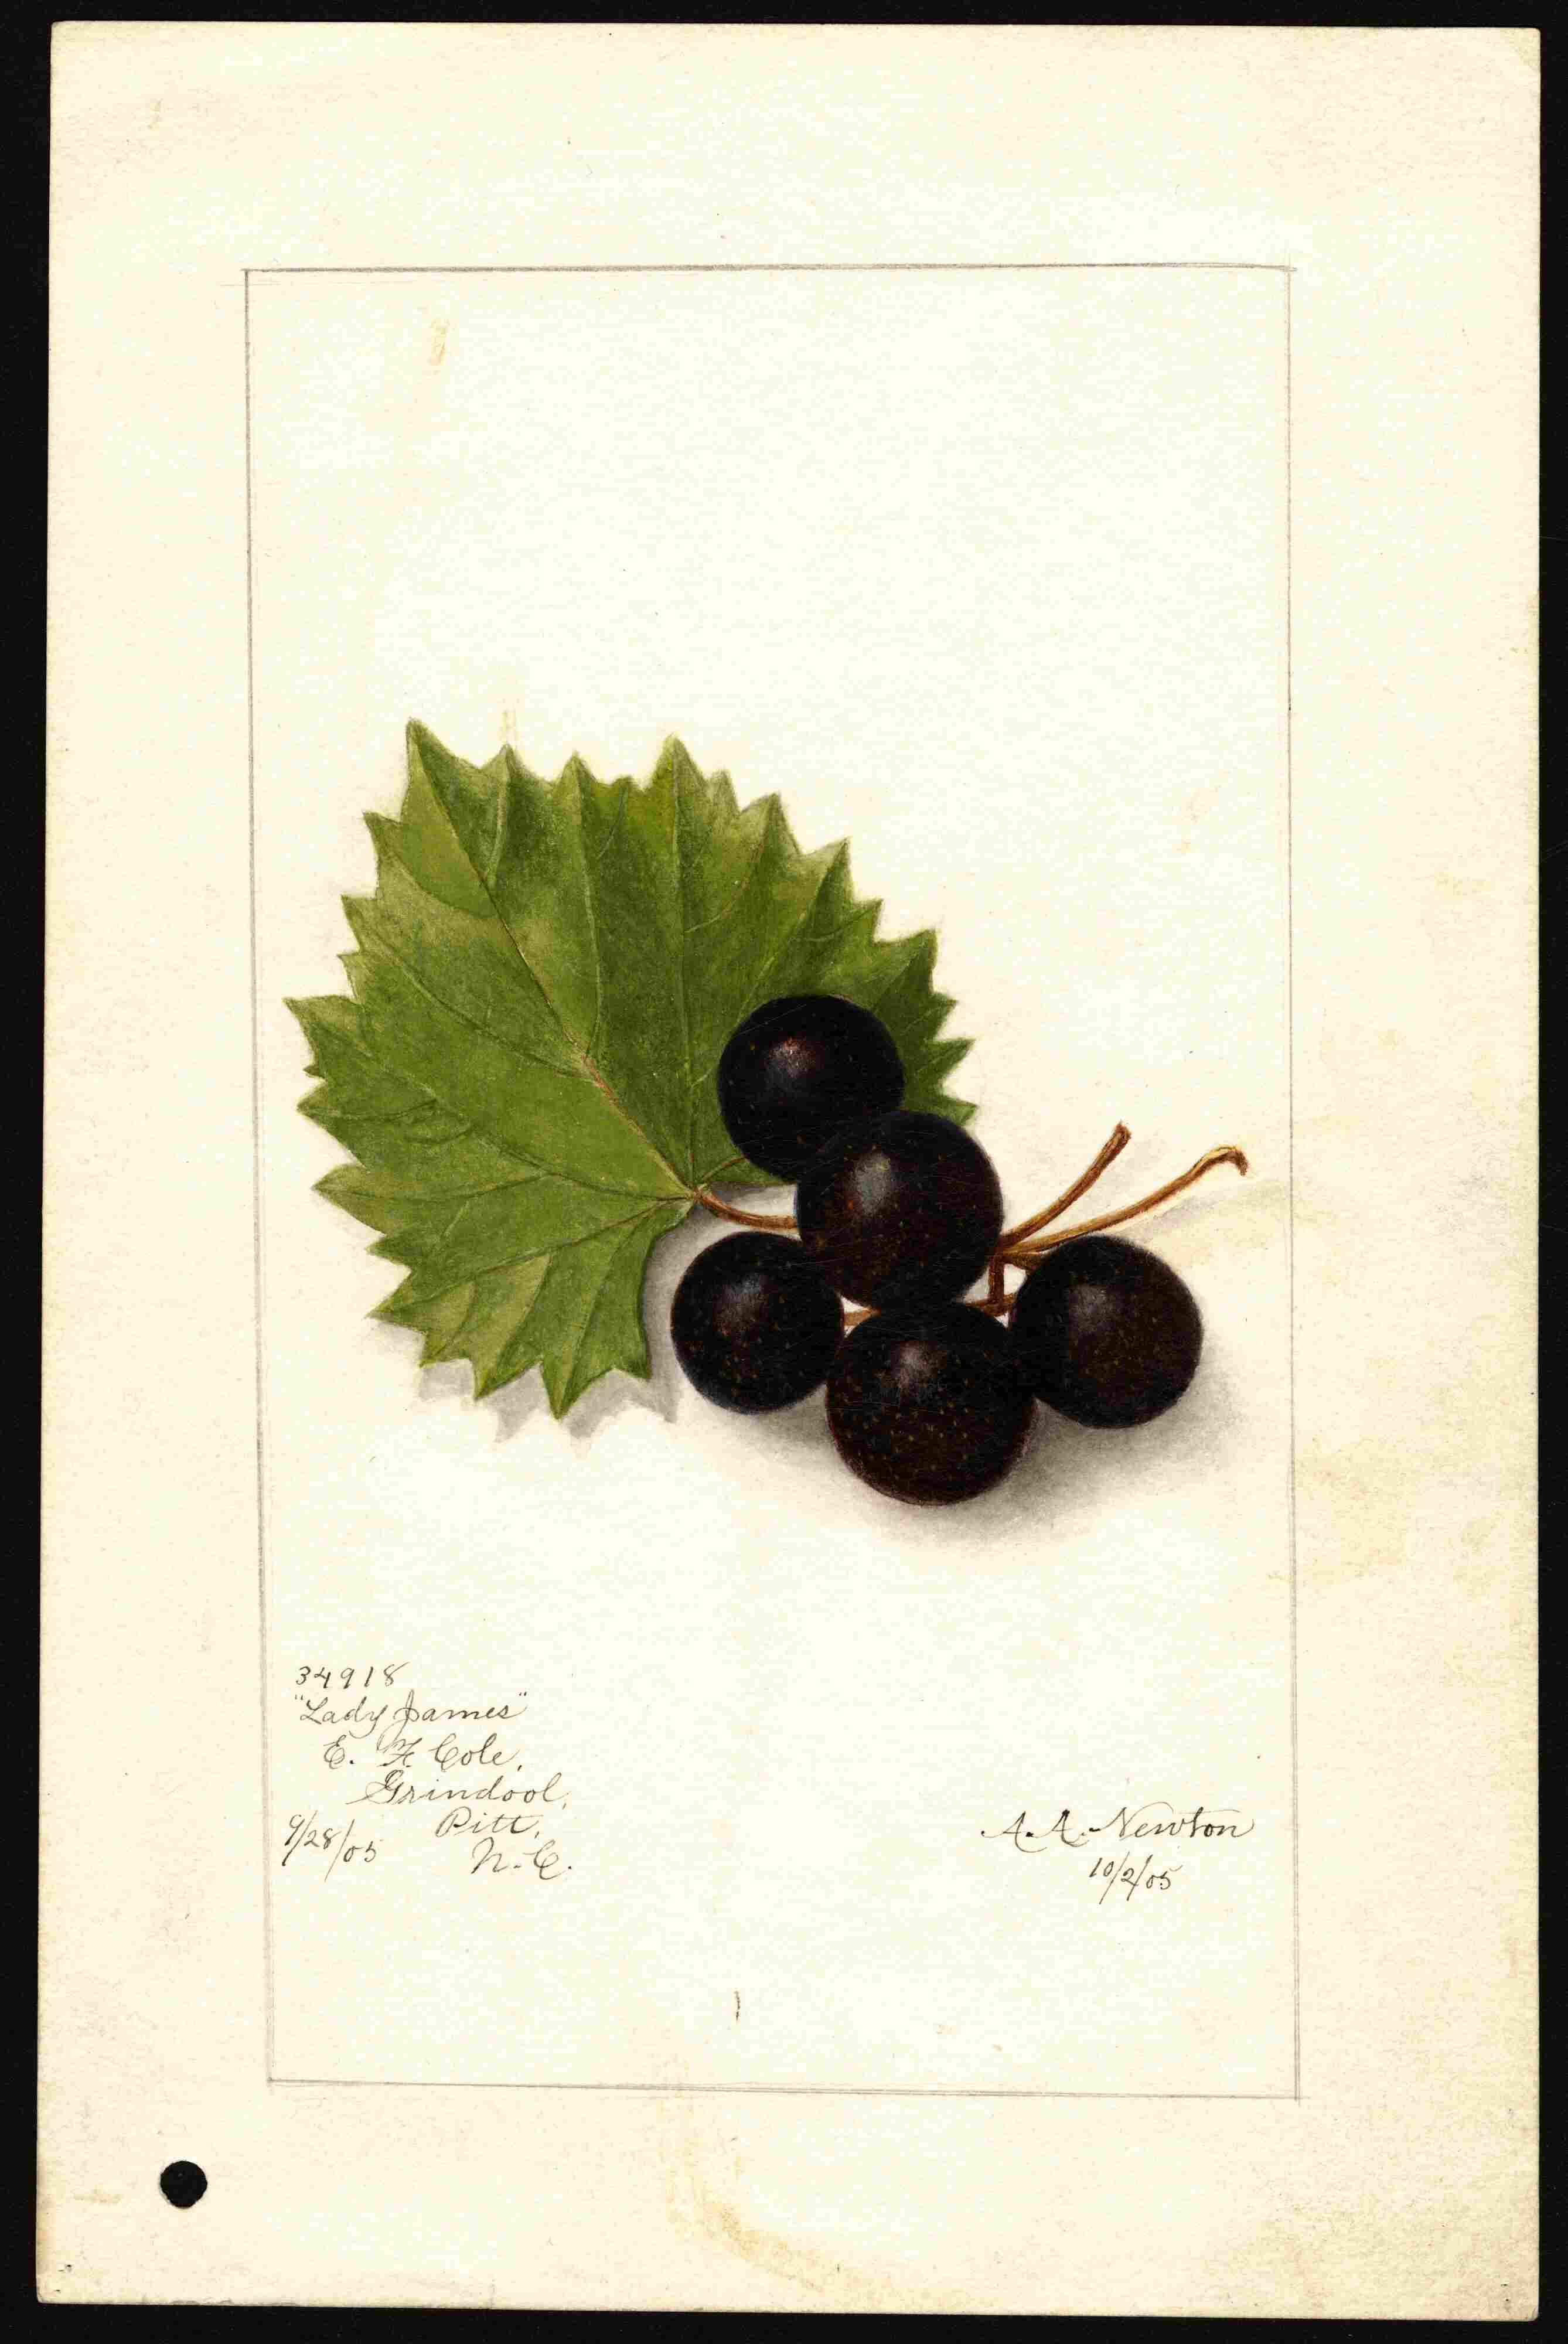 34918
"Lady James"
E. F. Cole,
Grindool,
Pitt,
9/28/05
N.C.
A.A. Newton
10/2/05